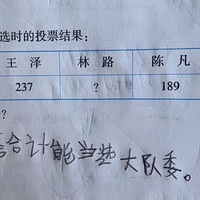 选时的投票结果：
王泽 林路 陈凡
237 ? 189
?
合计能当 大队委。